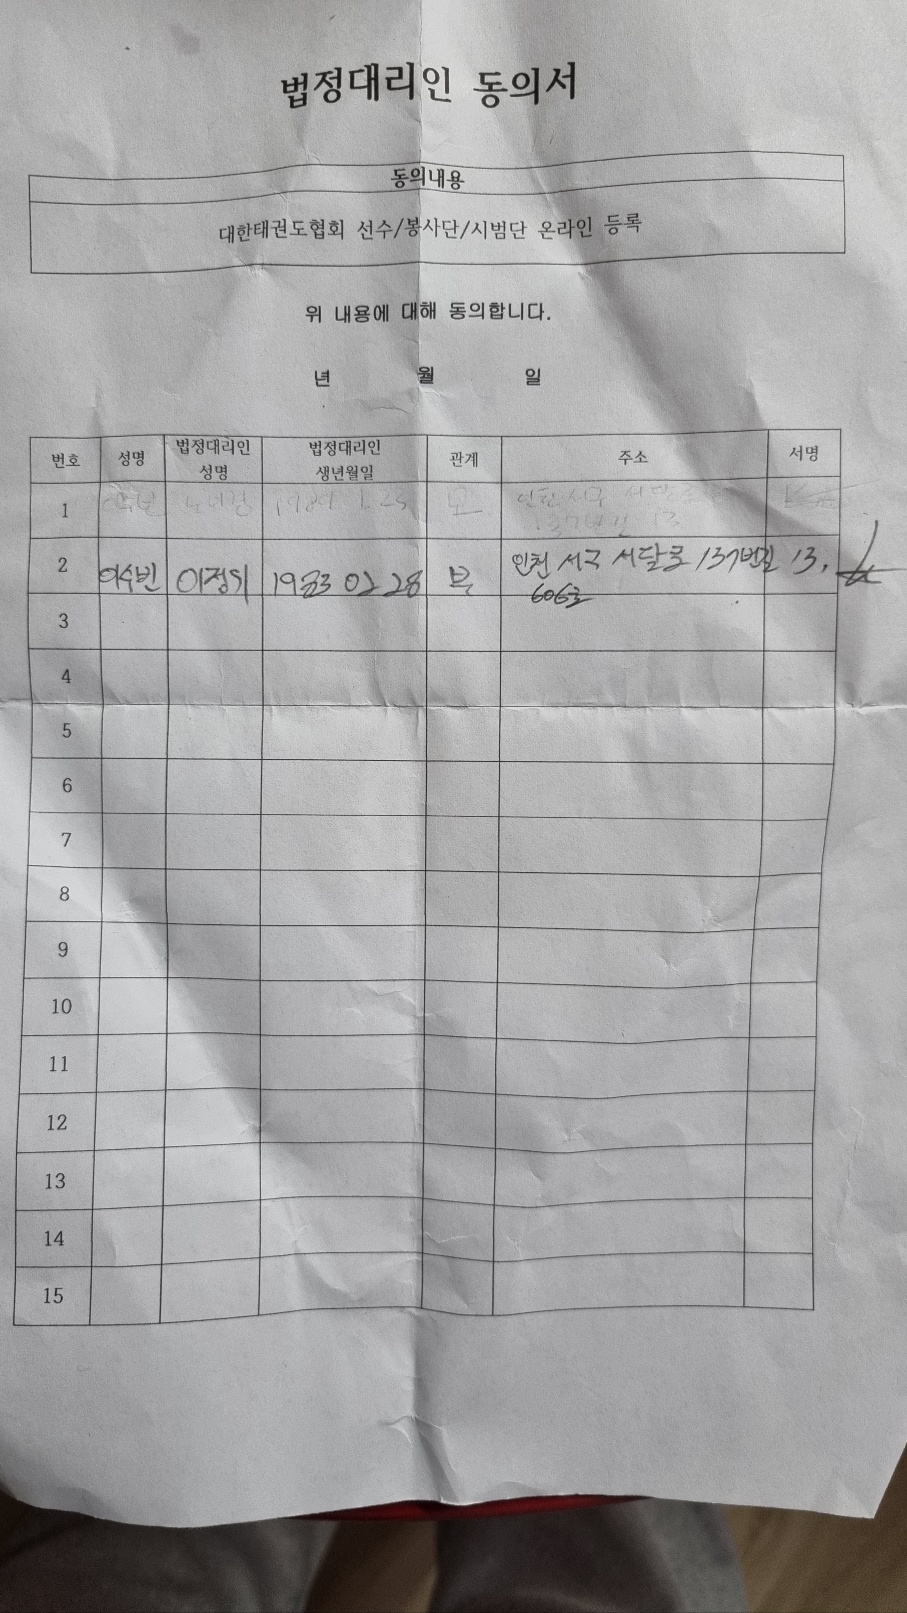 법정대리인 동의서
동의내용
대한태권도협회 선수/봉사단/시범단 온라인 등록
위 내용에 대해 동의합니다.
년 월 일
번호 성명 법정대리인 성명 법정대리인 생년월일 관계 주소 서명
1 모
137번길 13
2 이수빈 1983 02 28 부 인천 서구 서달로 137번길 13,
606호
3
4
5
6
7
8
9
10
11
12
13
14
15